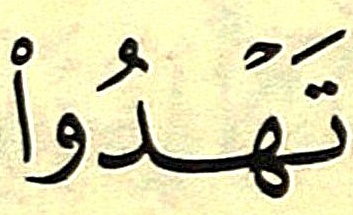 تَهۡدُواْ